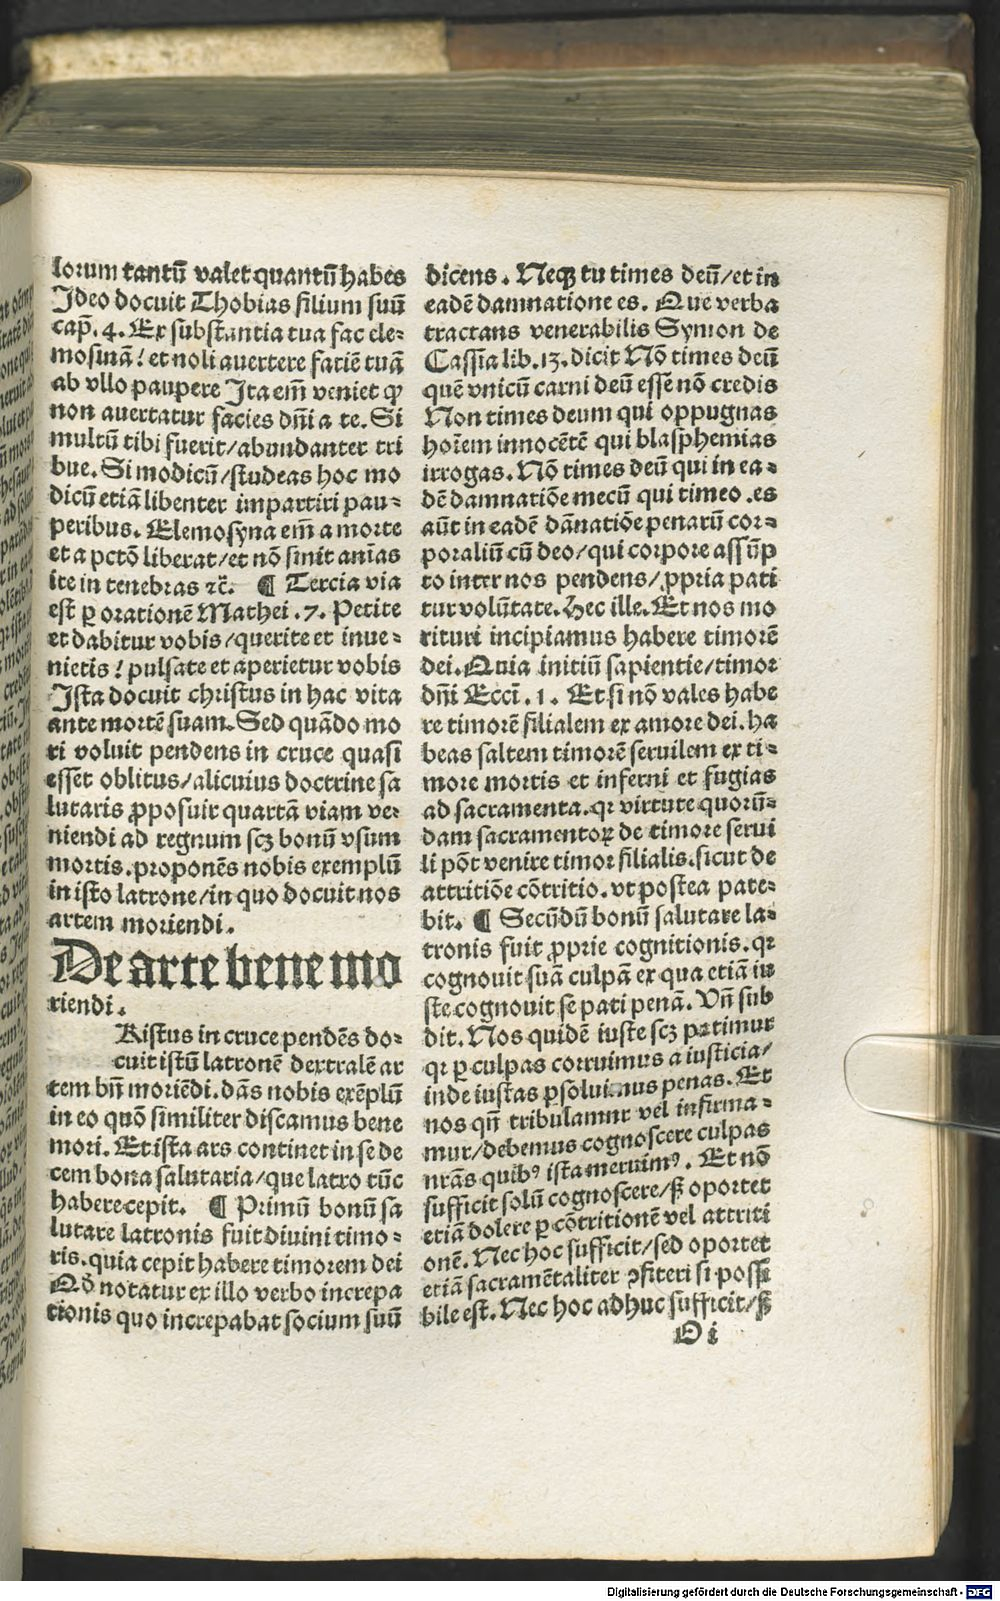 lorum tantū valet quantū habes
Ideo docuit Thobias filium suū
cap̄. 4. Ex substantia tua fac ele⸗
mosinā! et noli auertere faciē tuā
ab vllo paupere Ita em̄ veniet ꝙ
non auertatur facies dn̄i a te. Si
multū tibi fuerit/abundanter tri
bue. Si modicū/studeas hoc mo
dicū etiā libenter impartiri pau⸗
peribus. Elemosyna em̄ a morte
et a pctō liberat/et nō sinit anīas
ite in tenebras ⁊c̄. ¶ Tercia via
est ꝑ orationē Mathei. 7. Petite
et dabitur vobis/querite et inue⸗
nietis! pulsate et aperietur vobis
Ista docuit christus in hac vita
ante mortē suam. Sed quādo mo
ri voluit pendens in cruce quasi
esset oblitus/alicuius doctrine sa
lutaris ꝓposuit quartā viam ve⸗
niendi ad regnum scꝫ bonū vsum
mortis. proponēs nobis exemplū
in isto latrone/in quo docuit nos
artem moriendi.
De arte bene mo
riendi.
Ristus in cruce pendēs do⸗
cuit istū latronē dextralē ar
tem bn̄ moriēdi. dās nobis exēplū
in eo quō similiter discamus bene
mori. Et ista ars continet in se de
cem bona salutaria/que latro tūc
habere cepit. ¶ Primū bonū sa
lutare latronis fuit diuini timo⸗
ris. quia cepit habere timorem dei
Qd̄ notatur ex illo verbo increpa
tionis quo increpabat socium suū
dicens. Neqꝫ tu times deū/et in
eadē damnatione es. Que verba
tractans venerabilis Symon de
Cassia lib. 13. dicit Nō times deū
quē vnicū carni deū esse nō credis
Non times deum qui oppugnas
hoīem innocētē qui blasphemias
irrogas. Nō times deū qui in ea⸗
dē damnatiōe mecū qui timeo. es
aūt in eadē dānatiōe penarū cor⸗
poraliū cū deo/qui corpore assūp
to inter nos pendens/ꝓpria pati
tur volūtate. Hec ille. Et nos mo
rituri incipiamus habere timorē
dei. Quia initiū sapientie/timor
dn̄i Eccī. 1. Et si nō vales habe
re timorē filialem ex amore dei. ha
beas saltem timorē seruilem ex ti⸗
more mortis et inferni et fugias
ad sacramenta. qꝛ virtute quorū⸗
dam sacramentoꝝ de timore serui
li pōt venire timor filialis. sicut de
attritiōe cōtritio. vt postea pate⸗
bit. ¶ Secūdū bonū salutare la⸗
tronis fuit ꝓprie cognitionis. qꝛ
cognouit suā culpā ex qua etiā iu
ste cognouit se pati penā. Vn̄ sub
dit. Nos quidē iuste scꝫ patimur
qꝛ ꝑ culpas corruimus a iusticia/
inde iustas ꝑsoluimus penas. Et
nos qn̄ tribulamur vel infirma⸗
mur/debemus cognoscere culpas
nr̄as quibꝰ ista meruimꝰ. Et nō
sufficit solū cognoscere/ꝭ oportet
etiā dolere ꝑ cōtritionē vel attriti
onē. Nec hoc sufficit/sed oportet
etiā sacramētaliter ꝯfiteri si possi
bile est. Nec hoc adhuc sufficit/ꝭ
O i
Digitalisierung gefördert durch die Deutsche Forschungsgemeinschaft - DFG